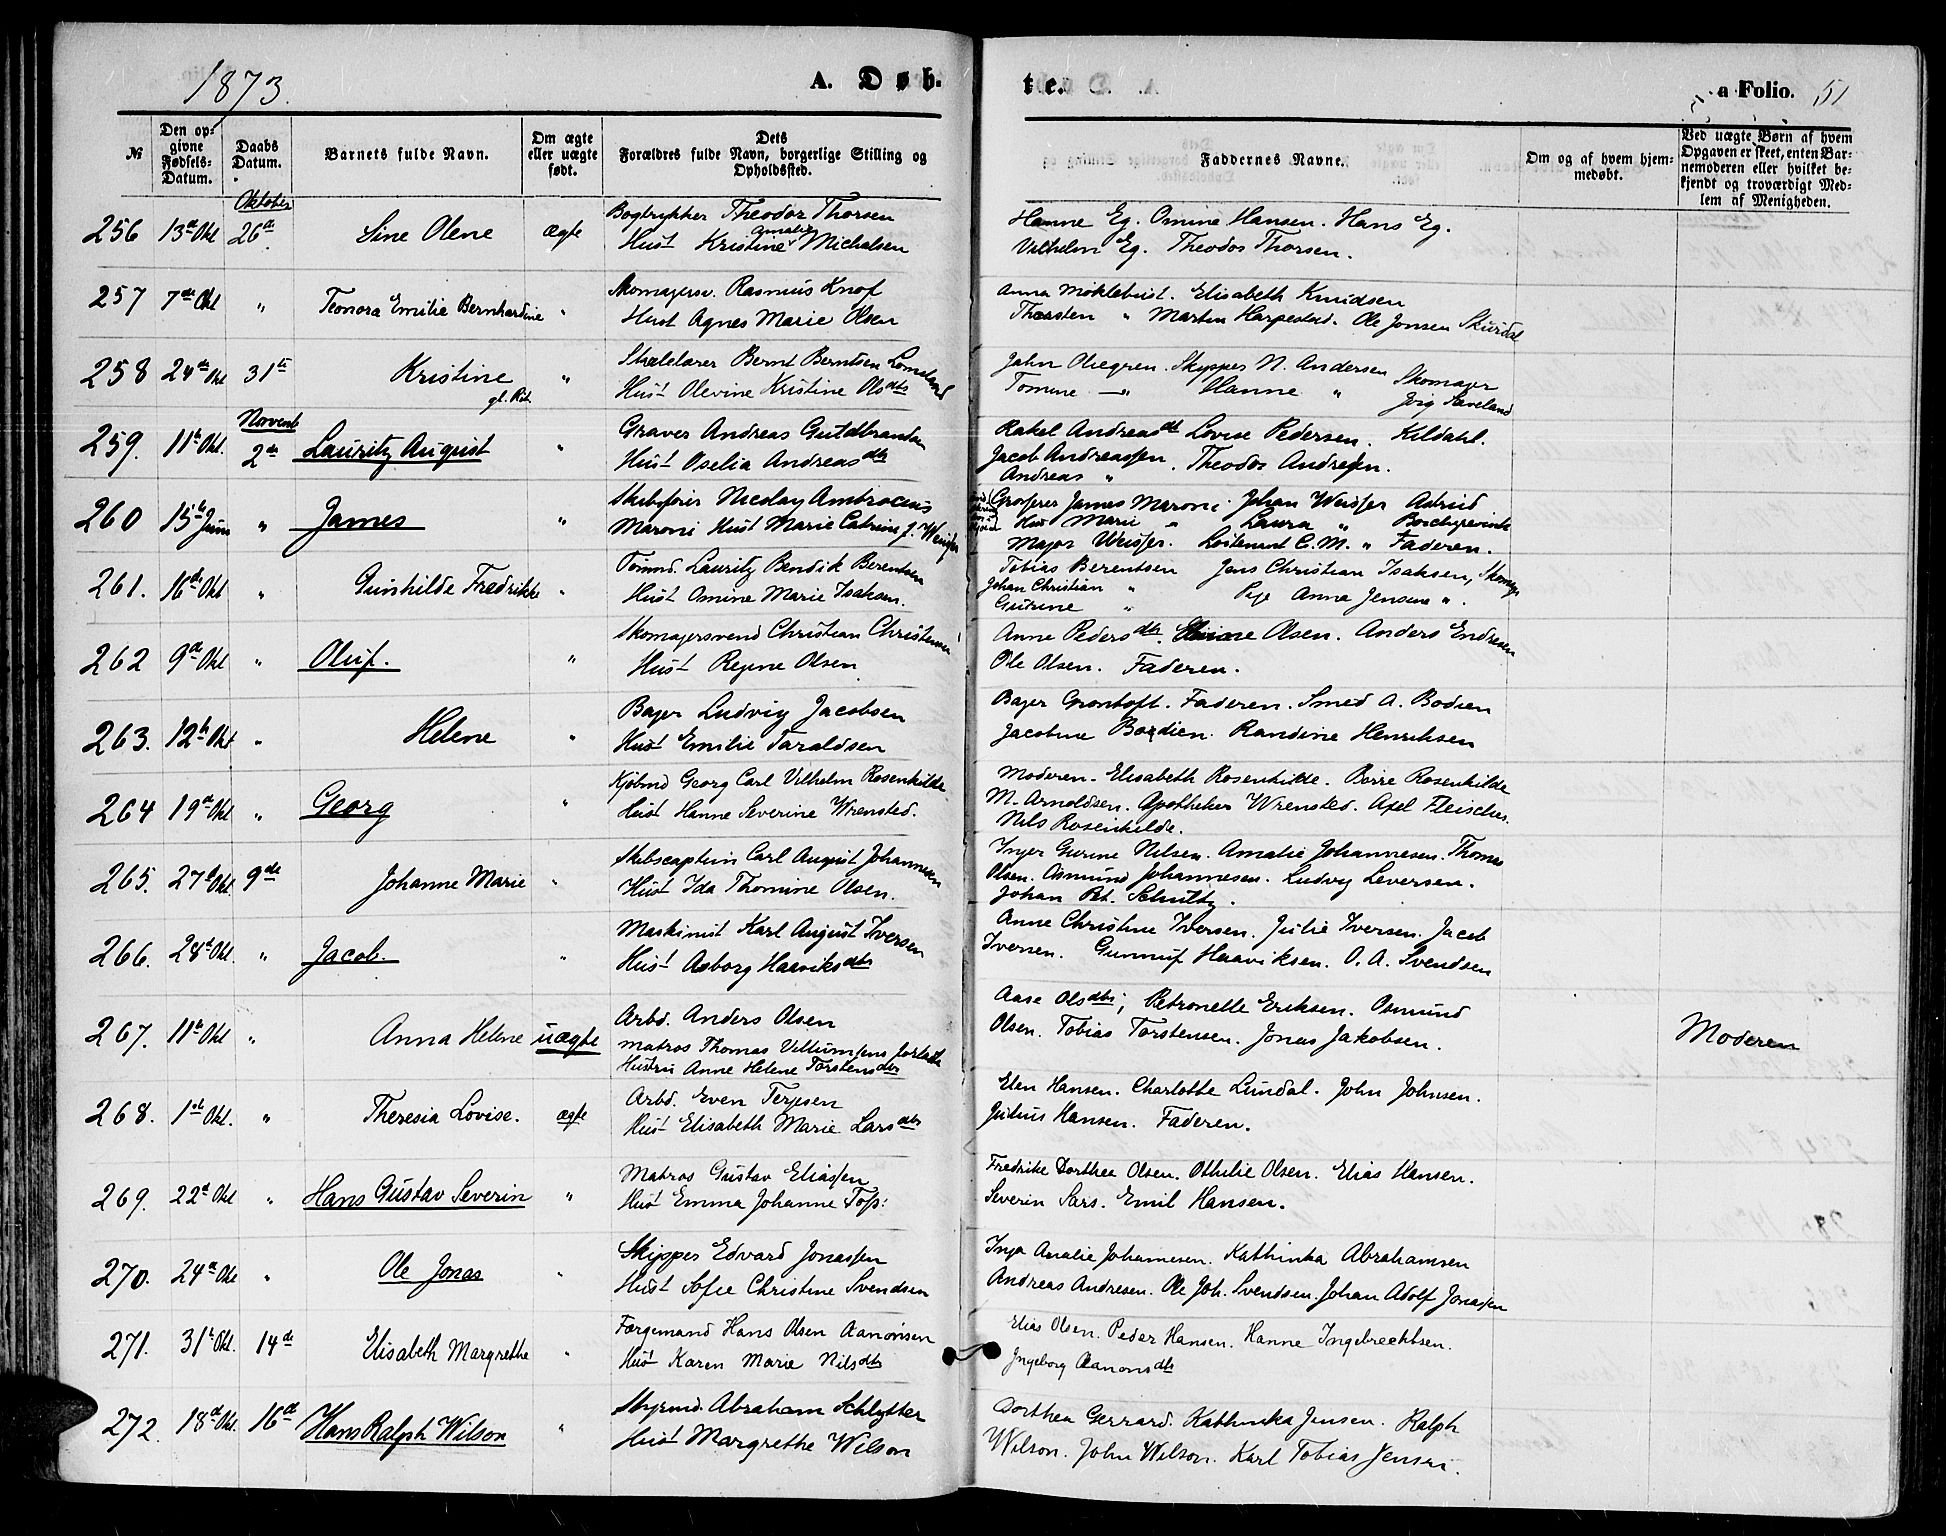 1873.
A. Døb-
te.
a Folio. 51
№
Den op-
givne
Fødsels-
Datum.
Daabs
Datum.
Barnets fulde Navn.
Om ægte
eller uægte
født.
Dets
Forældres fulde Navn, borgerlige Stilling og
Opholdssted.
Faddernes Navne.
Om og af hvem hjem-
medøbt.
Ved uægte Børn af hvem
Opgaven er skeet, enten Bar-
nemoderen eller hvilket be-
kjendt og troværdigt Med-
lem af Menigheden.
Oktober
256 13de Okt 26de Sine Olene ægte
Bogtrykker Theodor Thorsen
Hust Kristine Amalie Michalsen
Hanne Eg. Omine Hansen. Hans Eg.
Vilhelm Eg. Theodor Thorsen.
257 7de Okt " Teonora Emilie Bernhardine "
Skomagersv. Rasmus Knof
Hust Agnes Marie Olsen
Anna Møklebust. Elisabeth Knudsen
Thorsten " Martin Harpestad. Ole Jonsen Skurdal
258 24de Okt 31te Kristine "
Skolelærer Bernt Berntsen Lomeland
Hust Olevine Kristine Olsdtr
John Oliegren. Skypper N. Andersen
Tomine —"— Hanne " Skomager
259. 11te Okt. Novemb 2den Lauritz August "
Graver Andreas Guldbrandsen
Hust Oselia Andreasdtr
Rakel Andreasdt Lovise Pedersen. Kildahl.
Jacob Andreassen. Theodor Andresen.
Andreas "
260 15te Juni " James "
Skibsfører Nicolay Ambrocius
Maroni Hust Marie Catrine f. Weisser
Grosserer James Maroni. Johan Weisser Astrid
Hus Marie " Laura " Borchgrevink
Major Weisser. Loitenant C. M. " Faderen.
261. 16de Okt " Gunhilde Fredrikke "
Tømmd. Lauritz Bendik Berentsen
Hust Omine Marie Isaksen.
Tobias Berentsen Jens Christian Isaksen, Skomager
Johan Christian "
Gurine " Pige Anna Jensine ".
262 9de Okt " Oluf. "
Skomagersvend Christian Christensen
Hust Regine Olsen
Anne Pedersdtr. Olsen. Anders Endresen
Ole Olsen. Faderen.
263. 12te Okt " Helene "
Bager Ludvig Jacobsen
Hust Emilie Taraldsen
Bager Grontoft. Faderen. Smed A. Bodien
Jacobine Bordien. Randine Henriksen
264 19de Okt " Georg "
Kjøbmd Georg Carl Vilhelm Rosenkilde
Hust Hanne Severine Wrensted.
Moderen. Elisabeth Rosenkilde. Børre Rosenkilde
M. Arnoldsen. Apotheker Wrensted. Axel Fleischer.
Nils Rosenkilde.
265. 27de Okt. 9de Johanne Marie "
Skibscaptein Carl August Johannesen
Hust Ida Thomine Olsen.
Inger Gurine Nilsen. Amalie Johannesen. Thomas
Olsen. Osmund Johannesen. Ludvig Leversen.
Johan Pet. Schultz.
266. 28de Okt. " Jacob. "
Maskinist Karl August Iversen
Hust Asborg Haaviksdtr
Anne Christine Iversen. Julie Iversen. Jacob
Iversen. Gunnuf Haaviksen. O. A. Svendsen
267. 11te Okt " Anna Helene uægte
Arbd. Anders Olsen
Matros Thomas Villumsens forladte
Hustru Anne Helene Torstensdtr
Aase Olsdtr; Petronelle Eriksen. Osmund
Olsen. Tobias Torstensen. Jonas Jakobsen.
Moderen
268. 1st Okt. " Theresia Lovise. ægte
Arbd. Even Terjesen
Hust Elisabeth Marie Larsdtr
Elen Hansen. Charlotte Lundal. John Johnsen.
Julius Hansen. Faderen.
269. 22de Okt " Hans Gustav Severin "
Matros Gustav Eliassen
Hust Emma Johanne Foss:
Fredrike Dorthea Olsen. Othilie Olsen. Elias Hansen.
Severin Sars. Emil Hansen.
270. 24de Okt " Ole Jonas "
Skipper Edvard Jonassen
Hust Sofie Christine Svendsen
Inga Amalie Johannesen. Kathinka Abrahamsen
Andreas Andresen. Ole Joh. Svendsen. Johan Adolf Jonassen
271. 31te Okt. 14de Elisabeth Margrethe "
Færgemand Hans Olsen Aanonsen
Hust Karen Marie Nilsdtr
Elias Olsen. Peder Hansen. Hanne Ingebrechtsen.
Ingeborg Aanonsdtr
272. 18de Okt. 16de Hans Ralph Wilson "
Styrmd. Abraham Schlytter
Hust Margrethe Wilson
Dorthea Gerrard. Kathinka Jensen. Ralph
Wilson. John Wilson. Karl Tobias Jensen.